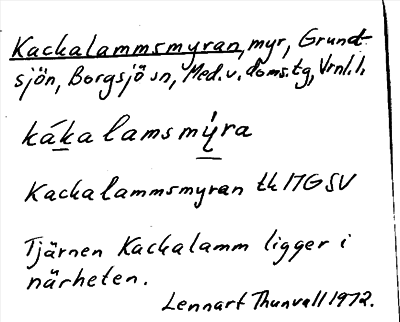 Kackalammsmyran, myr, Grund-
sjön, Borgsjö sn, Med. v. doms.tg, Vrnl. l.
kákalamsmýra
Kackalammsmyran tk 17G SV
Tjärnen Kackalamm ligger i
närheten.
Lennart Thunvall 1972.